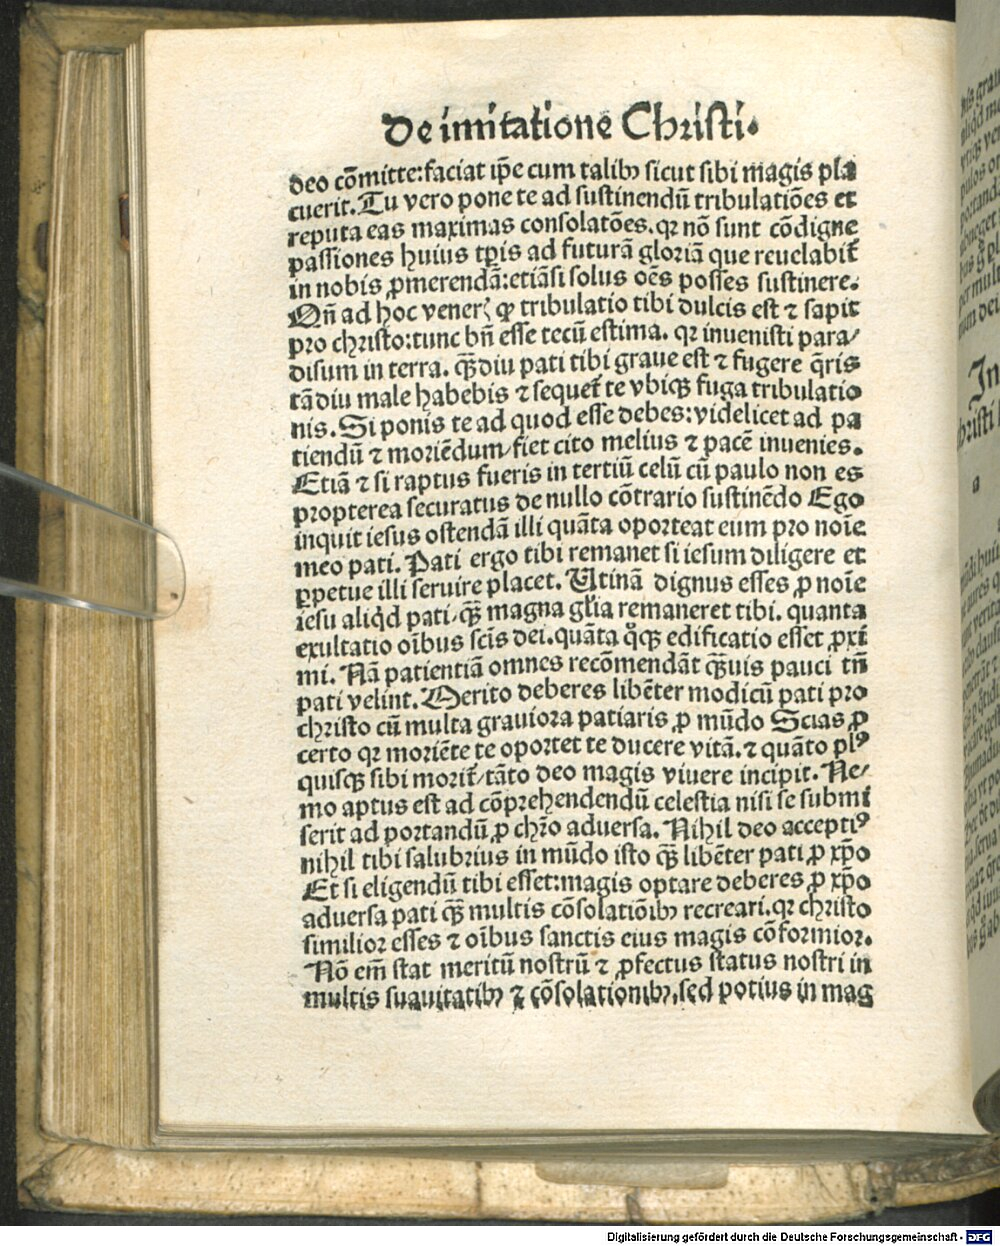 De imitatione Christi.
deo cōmitte: faciat ip̄e cum talibꝫ sicut sibi magis pla
cuerit. Tu vero pone te ad sustinendū tribulatiōes et
reputa eas maximas consolatōes. qꝛ nō sunt cōdigne
passiones huius tp̄is ad futurā gloriā que reuelabit̄
in nobis ꝓmerendā: etiāsi solus oēs posses sustinere.
Qn̄ ad hoc vener̄ ꝙ tribulatio tibi dulcis est ⁊ sapit
pro christo: tunc bn̄ esse tecū estima. qꝛ inuenisti para/
disum in terra. qͣꝫdiu pati tibi graue est ⁊ fugere q̄ris
tādiu male habebis ⁊ sequet̄ te vbiqꝫ fuga tribulatio
nis. Si ponis te ad quod esse debes: videlicet ad pa
tiendū ⁊ moriēdum/ fiet cito melius ⁊ pacē inuenies.
Etiā ⁊ si raptus fueris in tertiū celū cū paulo non es
propterea securatus de nullo cōtrario sustinēdo Ego
inquit iesus ostendā illi quāta oporteat eum pro noīe
meo pati. Pati ergo tibi remanet si iesum diligere et
ꝑpetue illi seruire placet. Utinā dignus esses ꝓ noīe
iesu aliqͥd pati/ qͣꝫ magna gl̄ia remaneret tibi. quanta
exultatio oībus scīs dei. quāta qͦqꝫ edificatio esset ꝓxi
mi. Nā patientiā omnes recōmendāt qͣꝫuis pauci tn̄
pati velint. Merito deberes libēter modicū pati pro
christo cū multa grauiora patiaris ꝓ mūdo Scias ꝓ
certo qꝛ moriēte te oportet te ducere vitā. ⁊ quāto plꝰ
quisqꝫ sibi morit̄/ tāto deo magis viuere incipit. Ne/
mo aptus est ad cōprehendendū celestia nisi se submi
serit ad portandū ꝓ chr̄o aduersa. Nihil deo acceptiꝰ
nihil tibi salubrius in mūdo isto qͣꝫ libēter pati ꝓ xp̄o
Et si eligendū tibi esset: magis optare deberes ꝓ xp̄o
aduersa pati qͣꝫ multis cōsolatiōibꝫ recreari. qꝛ christo
similior esses ⁊ oībus sanctis eius magis cōformior.
Nō em̄ stat meritū nostrū ⁊ ꝓfectus status nostri in
multis suauitatibꝫ ⁊ cōsolationibꝫ, sed potius in mag
In
a
Digitalisierung gefördert durch die Deutsche Forschungsgemeinschaft - DFG